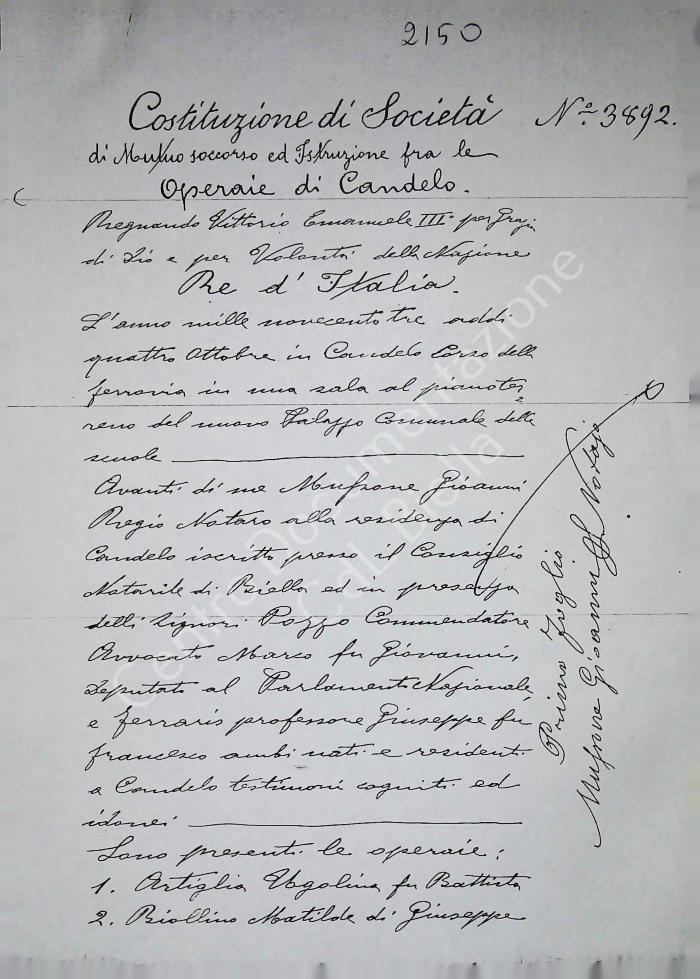 2150
Costituzione di Società N.º 3892.
di Mutuo soccorso ed Istruzione fra le
Operaie di Candelo.
Regnando Vittorio Emanuele III.º per Grazia
di Dio e per Volontà della Nazione
Re d'Italia.
L'anno mille novecento tre addi
quattro Ottobre in Candelo Corso della
ferrovia in una sala al pianoter=
reno del nuovo Palazzo Comunale delle
scuole
Avanti di me Mussone Gioanni
Regio Notaro alla residenza di
Candelo iscritto presso il Consiglio
Notarile di Biella ed in presenza
delli Signori Pozzo Commendatore
Avvocato Marco fu Giovanni,
Deputato al Parlamento Nazionale,
e Ferraris professore Giuseppe fu
Francesco ambi nati e residenti
a Candelo testimoni cogniti ed
idonei
Sono presenti le operaie:
1. Artiglia Ugolina fu Battista
2. Biollino Matilde di Giuseppe
Primo foglio
Mussone Gioanni Notajo
Centro Documentazione
CdL Biella